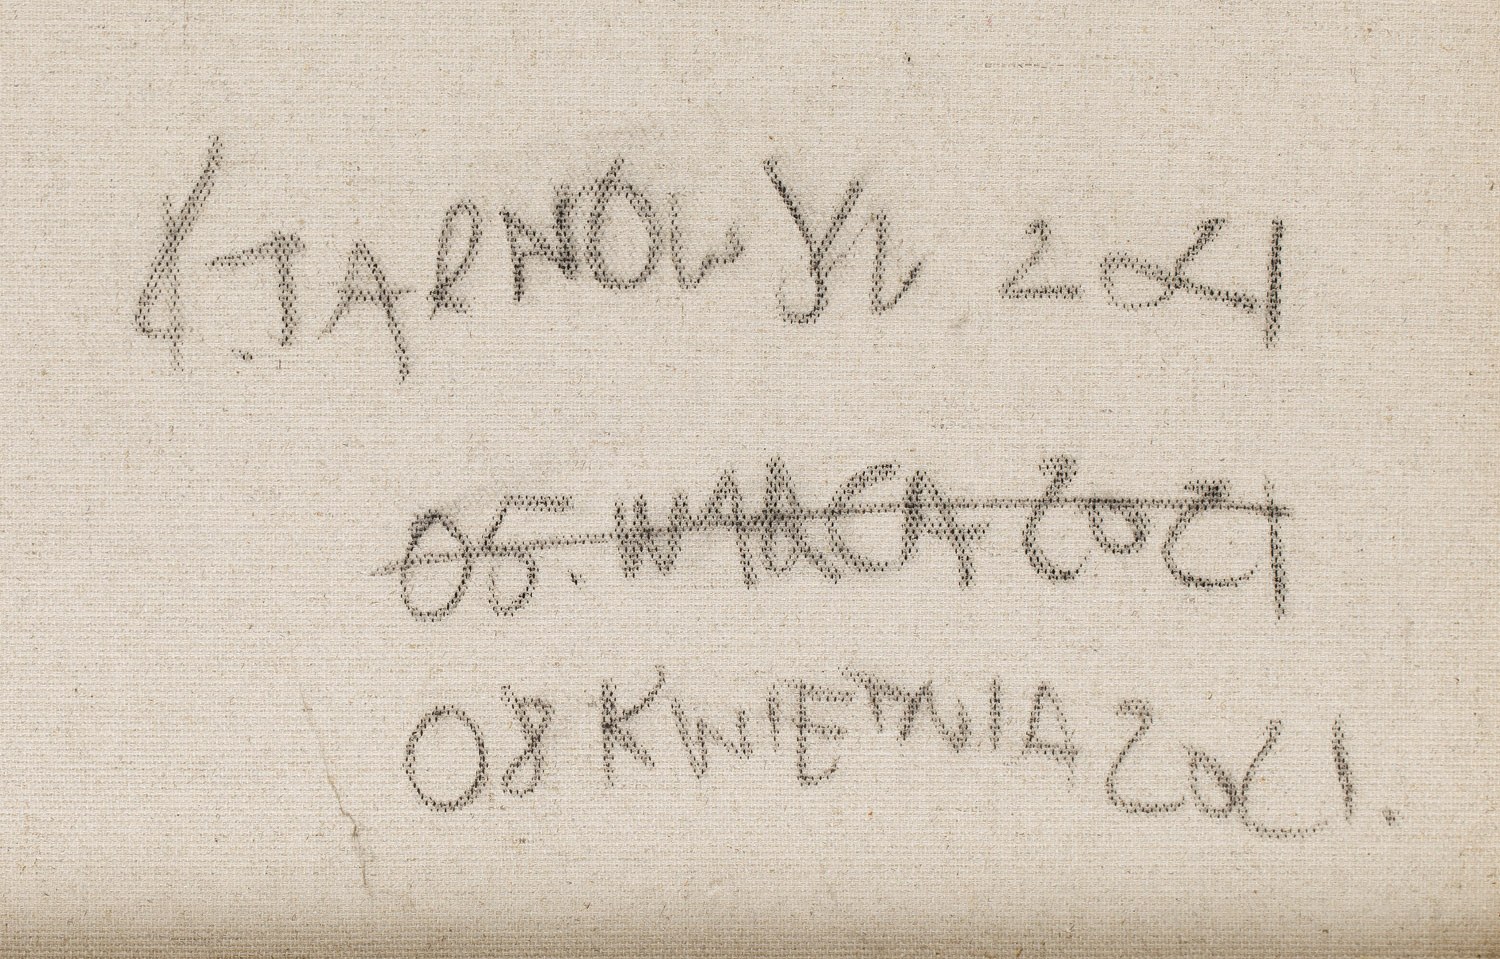 2021
05. MARCA 2021
08 KWIETNIA 2021.